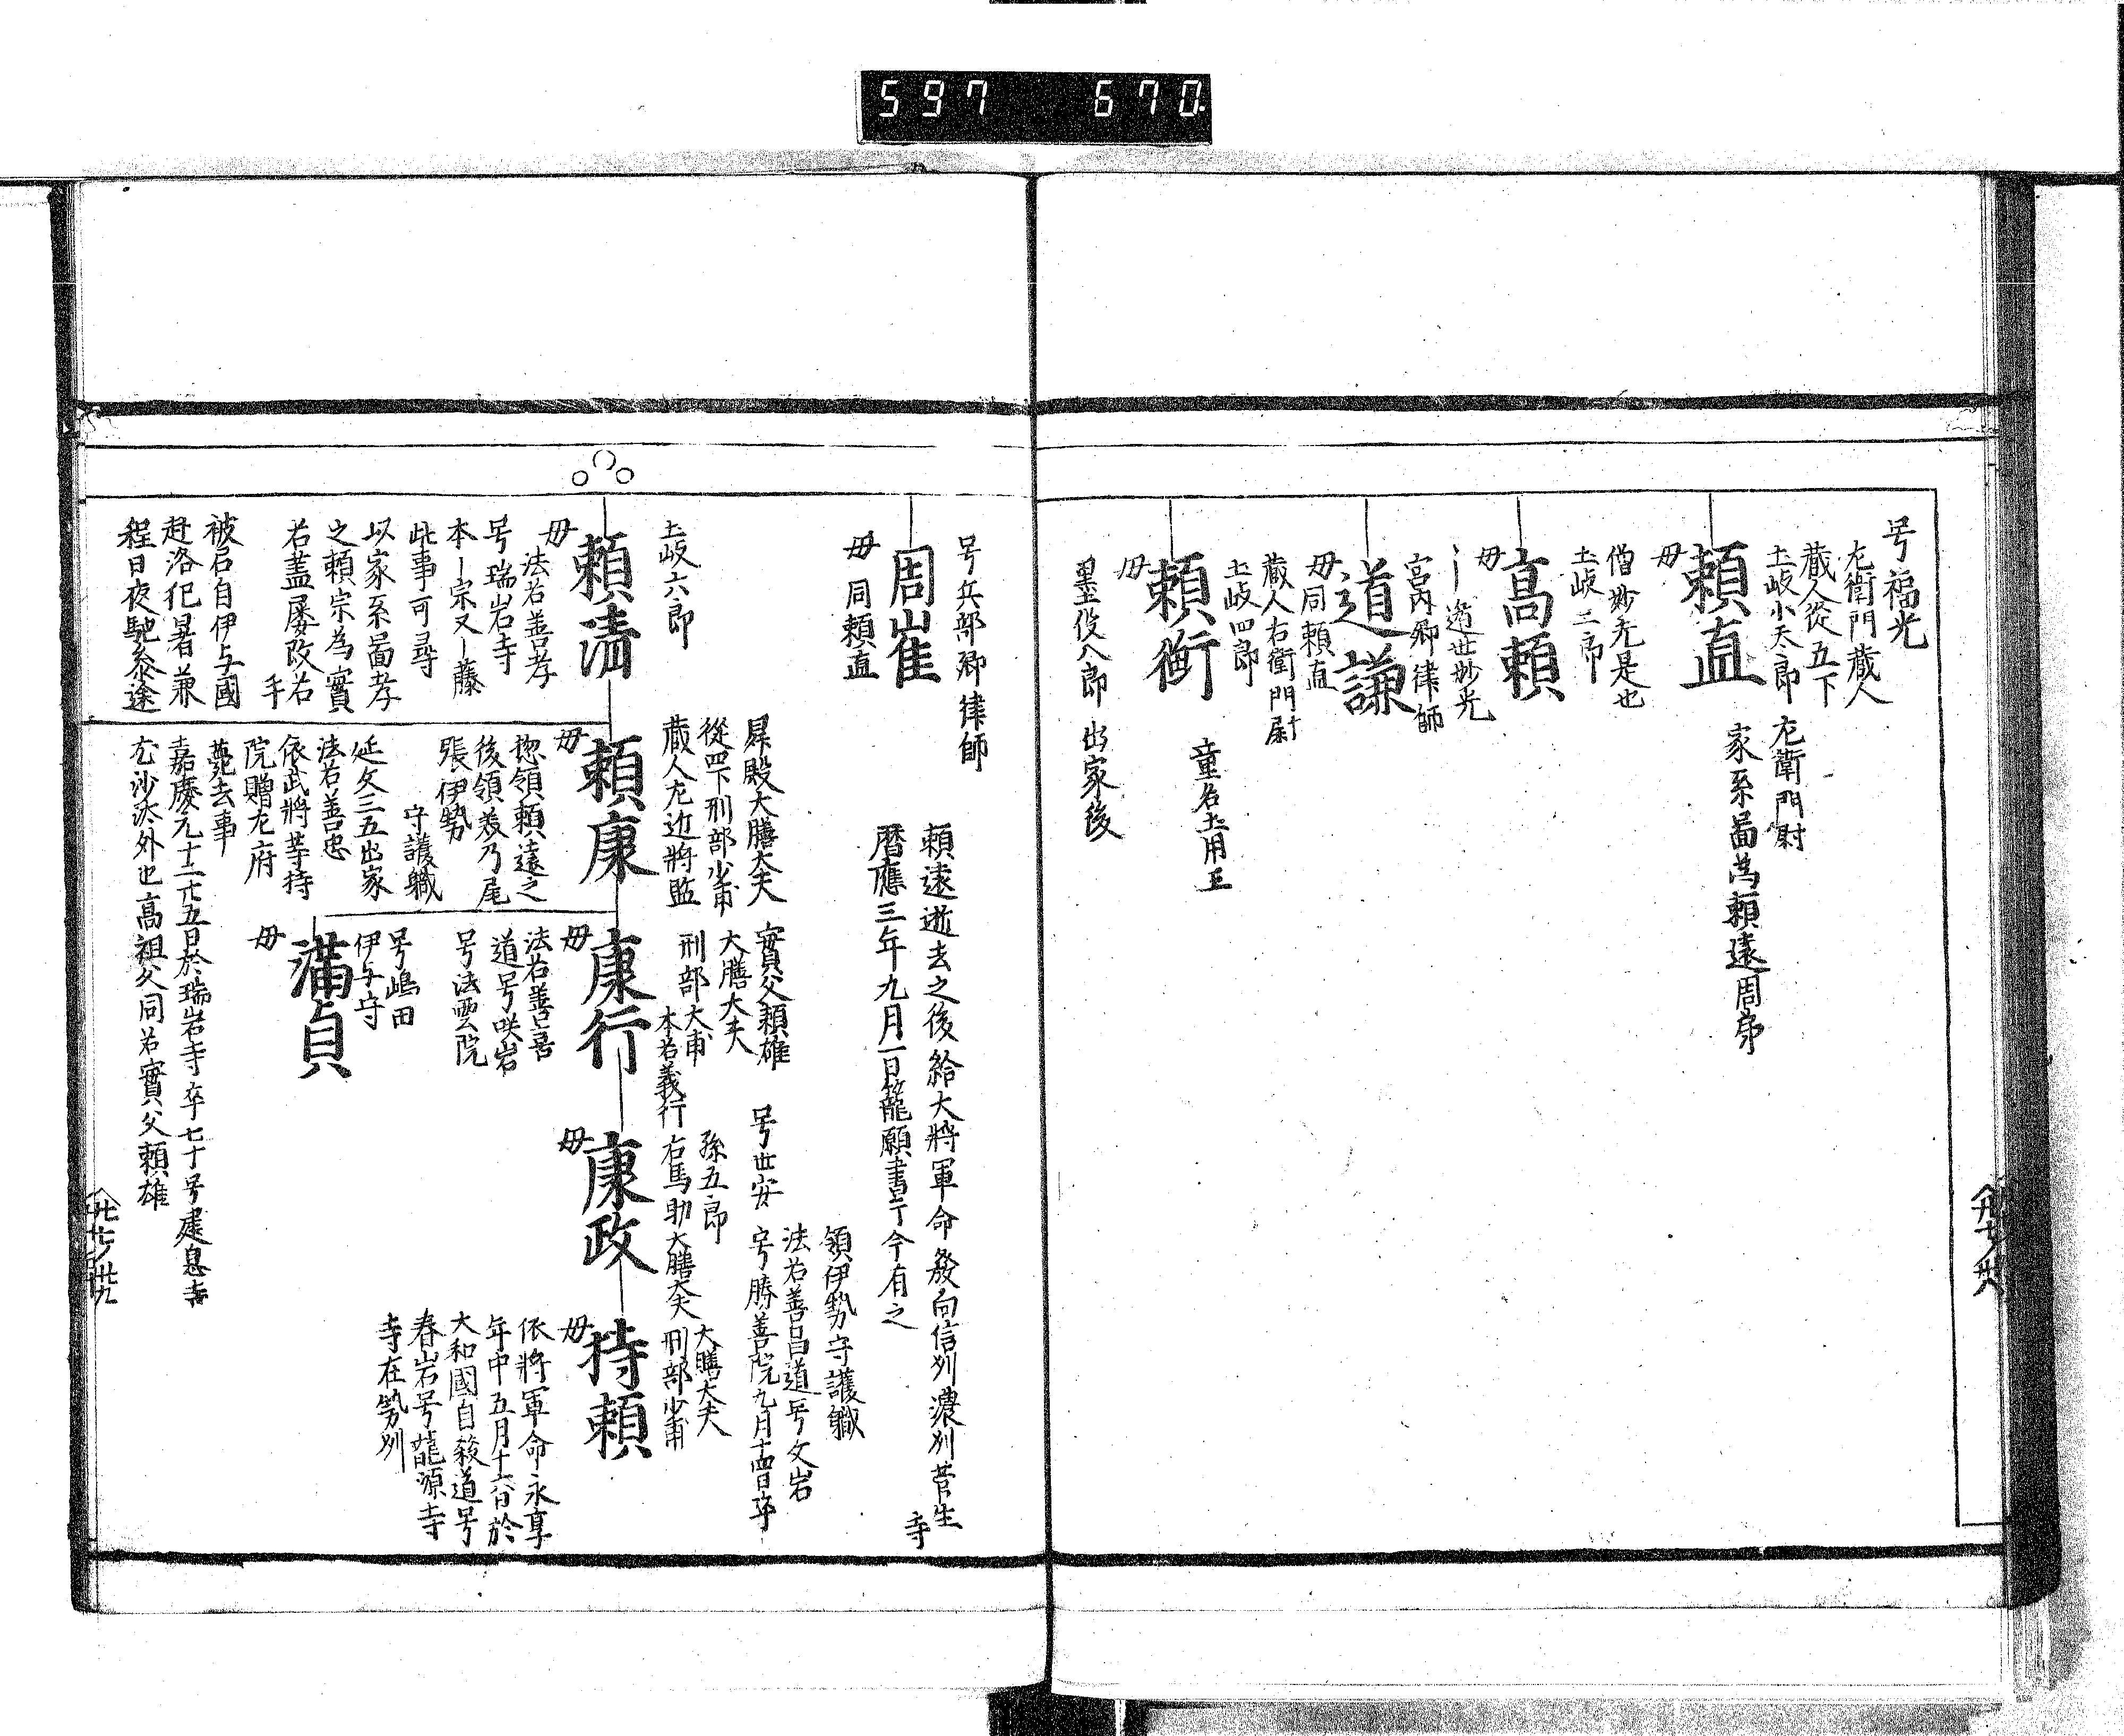 597 670.
号福光
左衛門蔵人
蔵人從五下
土岐小太郎 左衛門尉
頼直 家系畐為頼遠周弟
母
僧妙光是也
土岐二郎
高頼
母
遁世妙光
宮内卿律師
道謙
母同頼直
蔵人右衛門尉
土岐四郎
頼衡 童名土用王
母
出家後
号兵部卿律師
頼遠逝去之後給大將軍命發向信列濃列菅生
寺
周崔 暦應三年九月一日籠願書于今有之
母 同頼直
土岐六郎
頼清
母
法名善孝
号瑞岩寺
本ー宗又ー藤
此事可尋
以家系畐孝
之頼宗為實
名蓋屡改名
手
被召自伊与國
赴洛犯暑兼
程日夜馳参途
昇殿大膳大夫
從四下刑部少甫
蔵人左近將監
頼康
母
惣領頼遠之
後領美乃尾
張伊勢
守護職
延文三五出家
法名善忠
依武將等持
院贈左府
薨去事
嘉慶元十二廿五日於瑞岩寺卒七十号建恩寺
左沙汰外也高祖父同名實父頼雄
實父頼雄
大膳大夫
刑部大甫
本名義行
康行
母
法名善喜
道号咲岩
号法雲院
号嶋田
伊与守
満貞
母
号世安
孫五郎
右馬助大膳大夫
康政
母
領伊勢守護職
法名善昌道号文岩
号勝善院九月十四日卒
大膳大夫
刑部少甫
持頼
母
依將軍命永享
年中五月十六日於
大和國自殺道号
春岩号龍源寺
寺在勢列